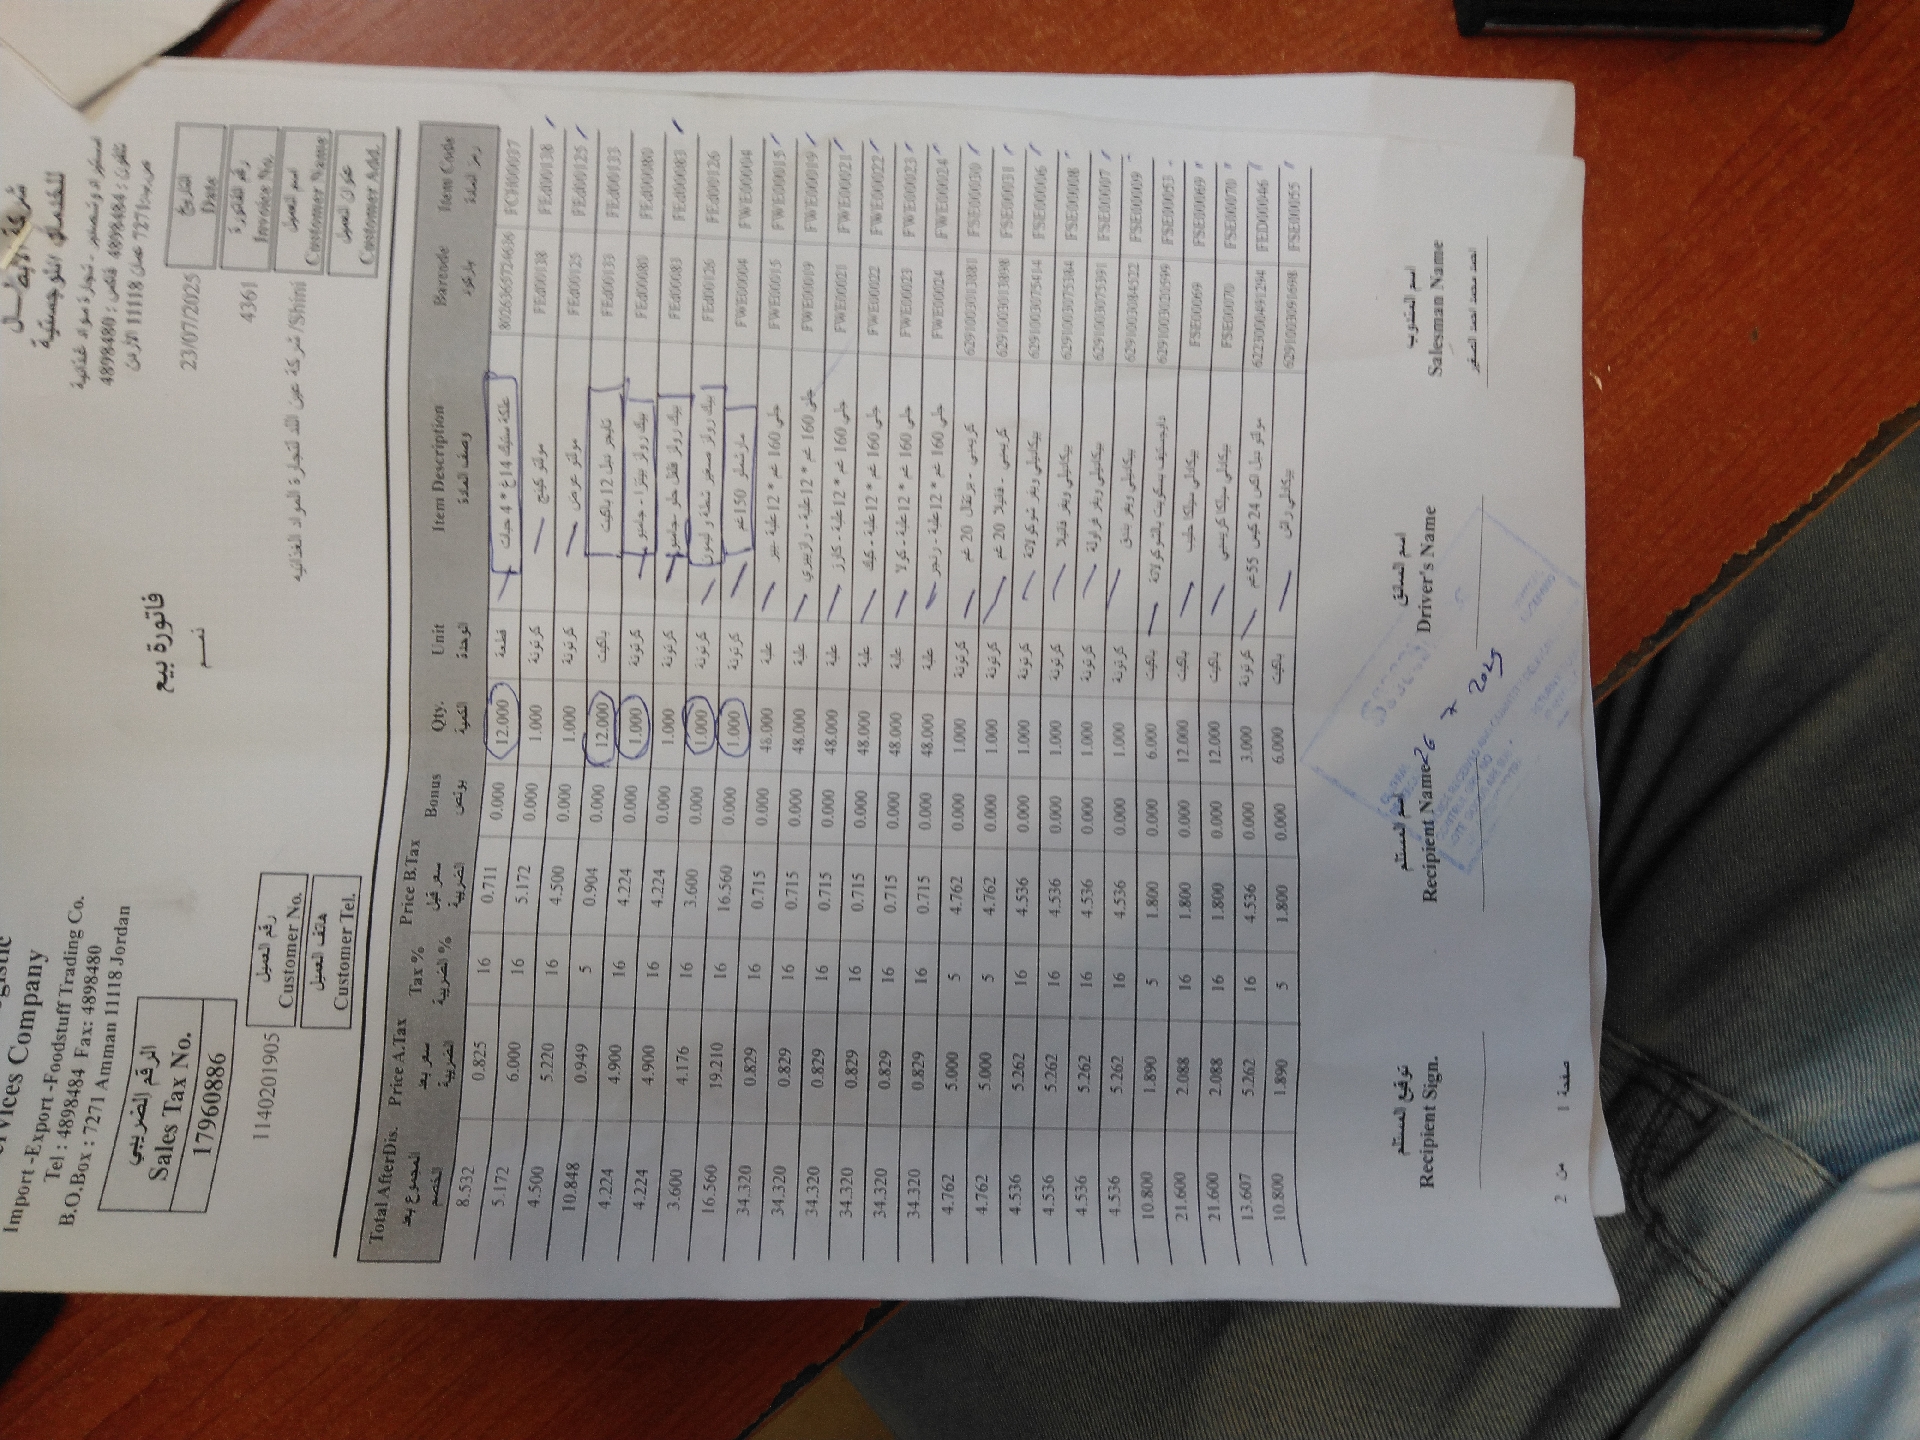 شركة الابطال
للخدمات اللوجستية
استيراد وتصدير - تجارة مواد غذائية
تلفون : 4898484 فاكس : 4898480
ص.ب 7271 عمان 11118 الأردن
Services Company
Import -Export -Foodstuff Trading Co.
Tel : 4898484 Fax: 4898480
B.O.Box : 7271 Amman 11118 Jordan
الرقم الضريبي
Sales Tax No.
17960886
فاتورة بيع
التاريخ
Date
23/07/2025
رقم الفاتورة
Invoice No.
4361
اسم العميل
Customer Name
عنوان العميل
Customer Add.
1140201905
رقم العميل
Customer No.
هاتف العميل
Customer Tel.
Total AfterDis. Price A.Tax Tax % Price B.Tax Bonus Qty. Unit Item Description Barcode Item Code
المجموع بعد الخصم سعر بعد الضريبة الضريبة % سعر قبل الضريبة بونص الكمية الوحدة وصف المادة باركود رمز المادة
8.532 0.825 16 0.711 0.000 12.000 قطعة
5.172 6.000 16 5.172 0.000 1.000 كرتونة مولتو كينج FEd00138 FEd00138
4.500 5.220 16 4.500 0.000 1.000 كرتونة مولتو عرض FEd00125 FEd00125
10.848 0.949 5 0.904 0.000 12.000 باكيت FEd00133 FEd00133
4.224 4.900 16 4.224 0.000 1.000 كرتونة بيك رولز بيتزا - جامبو FEd00080 FEd00080
4.224 4.900 16 4.224 0.000 1.000 كرتونة بيك رولز فلفل حلو -جامبو FEd00083 FEd00083
3.600 4.176 16 3.600 0.000 1.000 كرتونة بيك رولز صغير شطة و ليمون FEd00126 FEd00126
16.560 19.210 16 16.560 0.000 1.000 كرتونة مارشملو 150غم FWE00004 FWE00004
34.320 0.829 16 0.715 0.000 48.000 علبة جلي 160 غم * 12علبة FWE00015 FWE00015
34.320 0.829 16 0.715 0.000 48.000 علبة جلي 160 غم * 12علبة - رازبيري FWE00019 FWE00019
34.320 0.829 16 0.715 0.000 48.000 علبة جلي 160 غم * 12علبة - كارز FWE00021 FWE00021
34.320 0.829 16 0.715 0.000 48.000 علبة جلي 160 غم * 12علبة - كيك FWE00022 FWE00022
34.320 0.829 16 0.715 0.000 48.000 علبة جلي 160 غم * 12علبة - كولا FWE00023 FWE00023
34.320 0.829 16 0.715 0.000 48.000 علبة جلي 160 غم * 12علبة FWE00024 FWE00024
4.762 5.000 5 4.762 0.000 1.000 كرتونة كريسبي - برتقال 20 غم FSE00030
4.762 5.000 5 4.762 0.000 1.000 كرتونة كريسبي - فانيلا 20 غم 6291003013898 FSE00031
4.536 5.262 16 4.536 0.000 1.000 كرتونة بيكاديلي ويفر شوكولاتة 6291003075414 FSE00006
4.536 5.262 16 4.536 0.000 1.000 كرتونة بيكاديلي ويفر فانيلا 6291003075384 FSE00008
4.536 5.262 16 4.536 0.000 1.000 كرتونة بيكاديلي ويفر فراولة 6291003075391 FSE00007
4.536 5.262 16 4.536 0.000 1.000 كرتونة بيكاديلي ويفر بندق 6291003084522 FSE00009
10.800 1.890 5 1.800 0.000 6.000 باكيت دايجستيف بسكويت بالشوكولاتة 6291003020599 FSE00053
21.600 2.088 16 1.800 0.000 12.000 باكيت بيكاديلي سيلكا حليب FSE00069 FSE00069
21.600 2.088 16 1.800 0.000 12.000 باكيت بيكاديلي سيلكا كريسبي FSE00070 FSE00070
13.607 5.262 16 4.536 0.000 3.000 كرتونة مولتو ميل اكس 24 كيس 55غم 6223000491294 FED00046
10.800 1.890 5 1.800 0.000 6.000 باكيت بيكاديلي 6291003091698 FSE00055
توقيع المستلم اسم المستلم اسم السائق اسم المندوب
Recipient Sign. Recipient Name Driver's Name Salesman Name
26 7 2025
صفحة 1 من 2